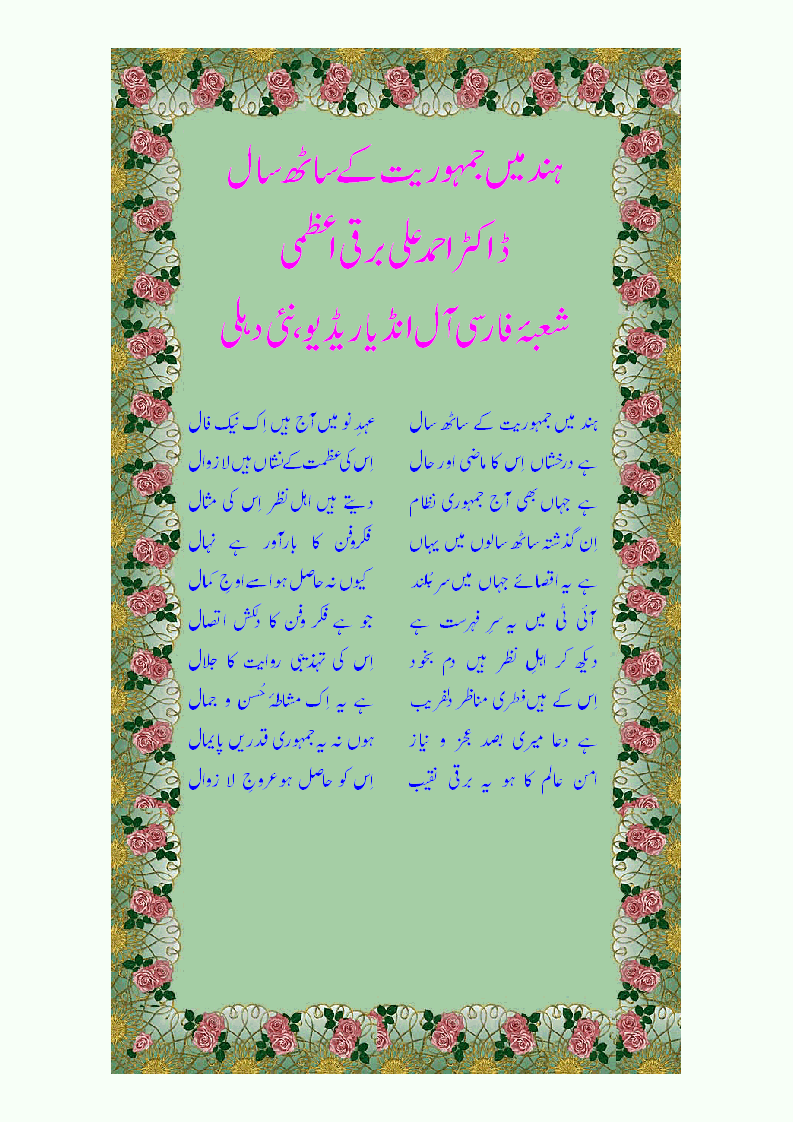 ہند میں جمہوریت کے ساٹھ سال
ڈاکٹر احمد علی برقی اعظمی
شعبۂ فارسی آل انڈیا ریڈیو، نئی دہلی
ہند میں جمہوریت کے ساٹھ سال عہدِ نو میں آج ہیں اِک نیک فال
ہے درخشاں اِس کا ماضی اور حال اِس کی عظمت کے نشاں ہیں لازوال
ہے جہاں بھی آج جمہوری نظام دیتے ہیں اہل نظر اِس کی مثال
اِن گذشتہ ساٹھ سالوں میں یہاں فکروفن کا بارآور ہے نہال
ہے یہ اقصائے جہاں میں سر بُلند کیوں نہ حاصل ہو اسے اوجِ کمال
آئی ٹی میں یہ سرِ فہرست ہے جو ہے فکر وفن کا دلکش اتصال
دیکھ کر اہلِ نظر ہیں دم بخود اِس کی تہذیبی روایت کا جلال
اِس کے ہیں فطری مناظر دلفریب ہے یہ اِک مشاطۂ حُسن و جمال
ہے دعا میری بصد عجز و نیاز ہوں نہ یہ جمہوری قدریں پایمال
امن عالم کا ہو یہ برقی نقیب اِس کو حاصل ہو عروج لا زوال